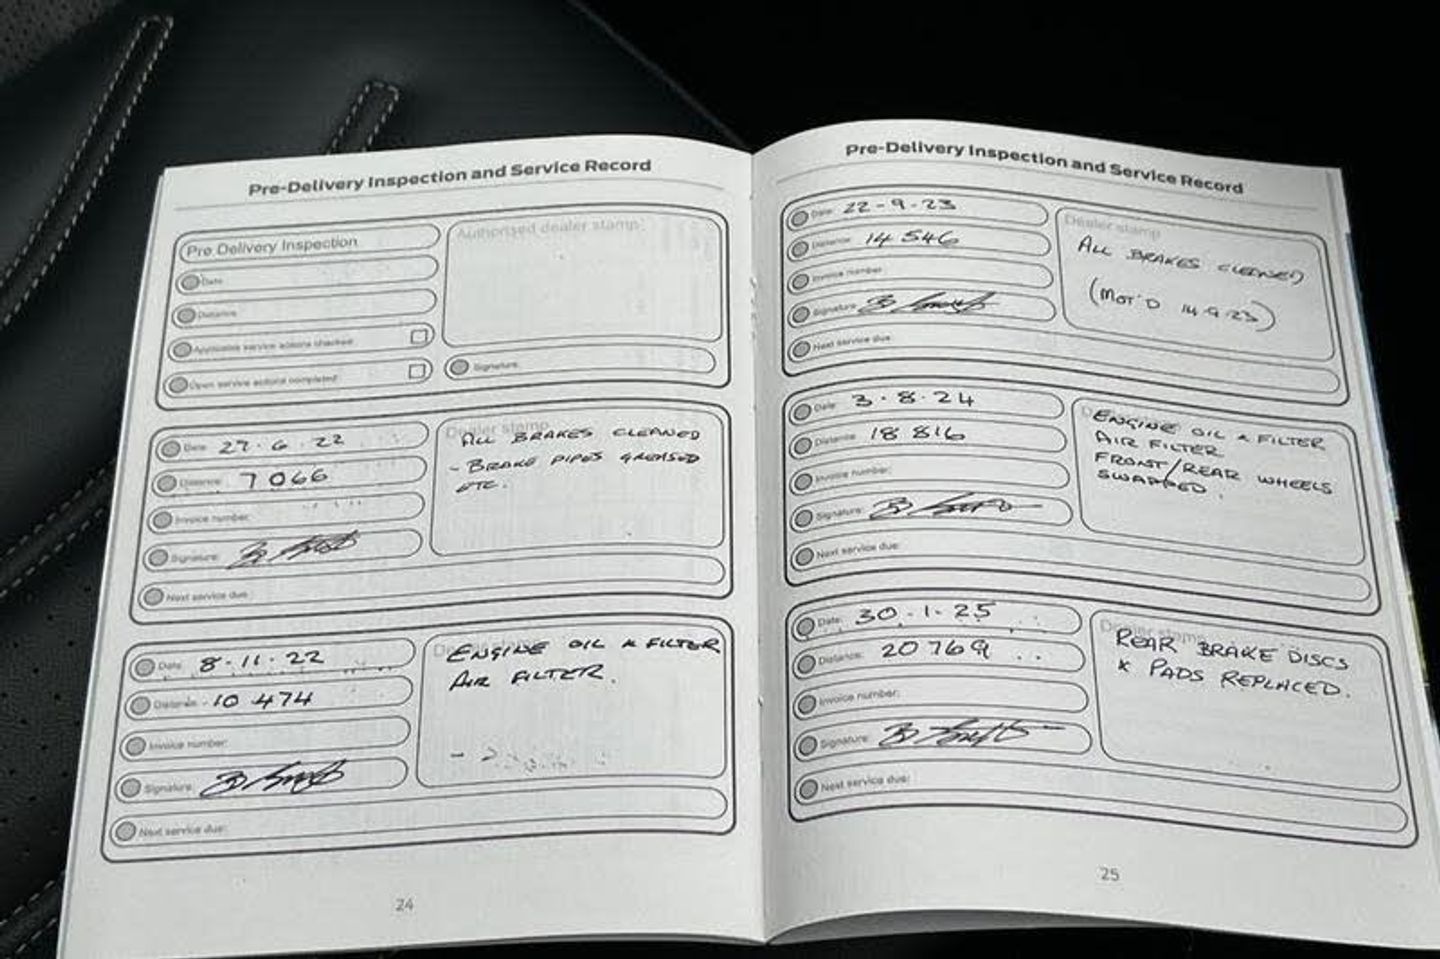 Pre-Delivery Inspection and Service Record
Pre Delivery Inspection
Date:
Distance:
Applicable service actions checked
Open service actions completed:
Authorised dealer stamp:
Signature:
Date: 27.6.22
Distance: 7066
Invoice number:
Signature:
Next service due:
Dealer stamp
ALL BRAKES CLEANED
- BRAKE PIPES GREASED
ETC.
Date: 8-11-22
Distance: 10 474
Invoice number:
Signature:
Next service due:
Dealer stamp
ENGINE OIL & FILTER
AIR FILTER.
24
Pre-Delivery Inspection and Service Record
Date: 22-9-23
Distance: 14 546
Invoice number:
Signature:
Next service due:
Dealer stamp
ALL BRAKES CLEANED
(MOT'D 14.9.23)
Date: 3.8.24
Distance: 18 816
Invoice number:
Signature:
Next service due:
ENGINE OIL & FILTER
AIR FILTER
FRONT/REAR WHEELS
SWAPPED.
Date: 30.1.25
Distance: 20 769
Invoice number:
Signature:
Next service due:
Dealer stamp
REAR BRAKE DISCS
& PADS REPLACED.
25